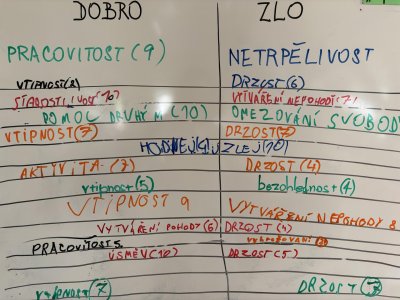 DOBRO ZLO
PRACOVITOST (9) NETRPĚLIVOST
VTIPNOST(8) DRZOST (6)
STAROSTLIVOST (10) VYTVÁŘENÍ NEPOHODY
POMOC DRUHÝM (10) OMEZOVÁNÍ SVOBODY
VTIPNOST (7) DRZOST
HODNEJ ZLEJ (10)
AKTIVITA (7) DRZOST (4)
vtipnost (5) bezohlednost (4)
VTIPNOST 9 VYTVÁŘENÍ NEPOHODY 8
VYTVÁŘENÍ POHODY (6) DRZOST (4)
PRACOVITOST 5 VYHROŽOVÁNÍ
ÚSMĚV (10) DRZOST (5)
VTIPNOST (7) DRZOST (7)